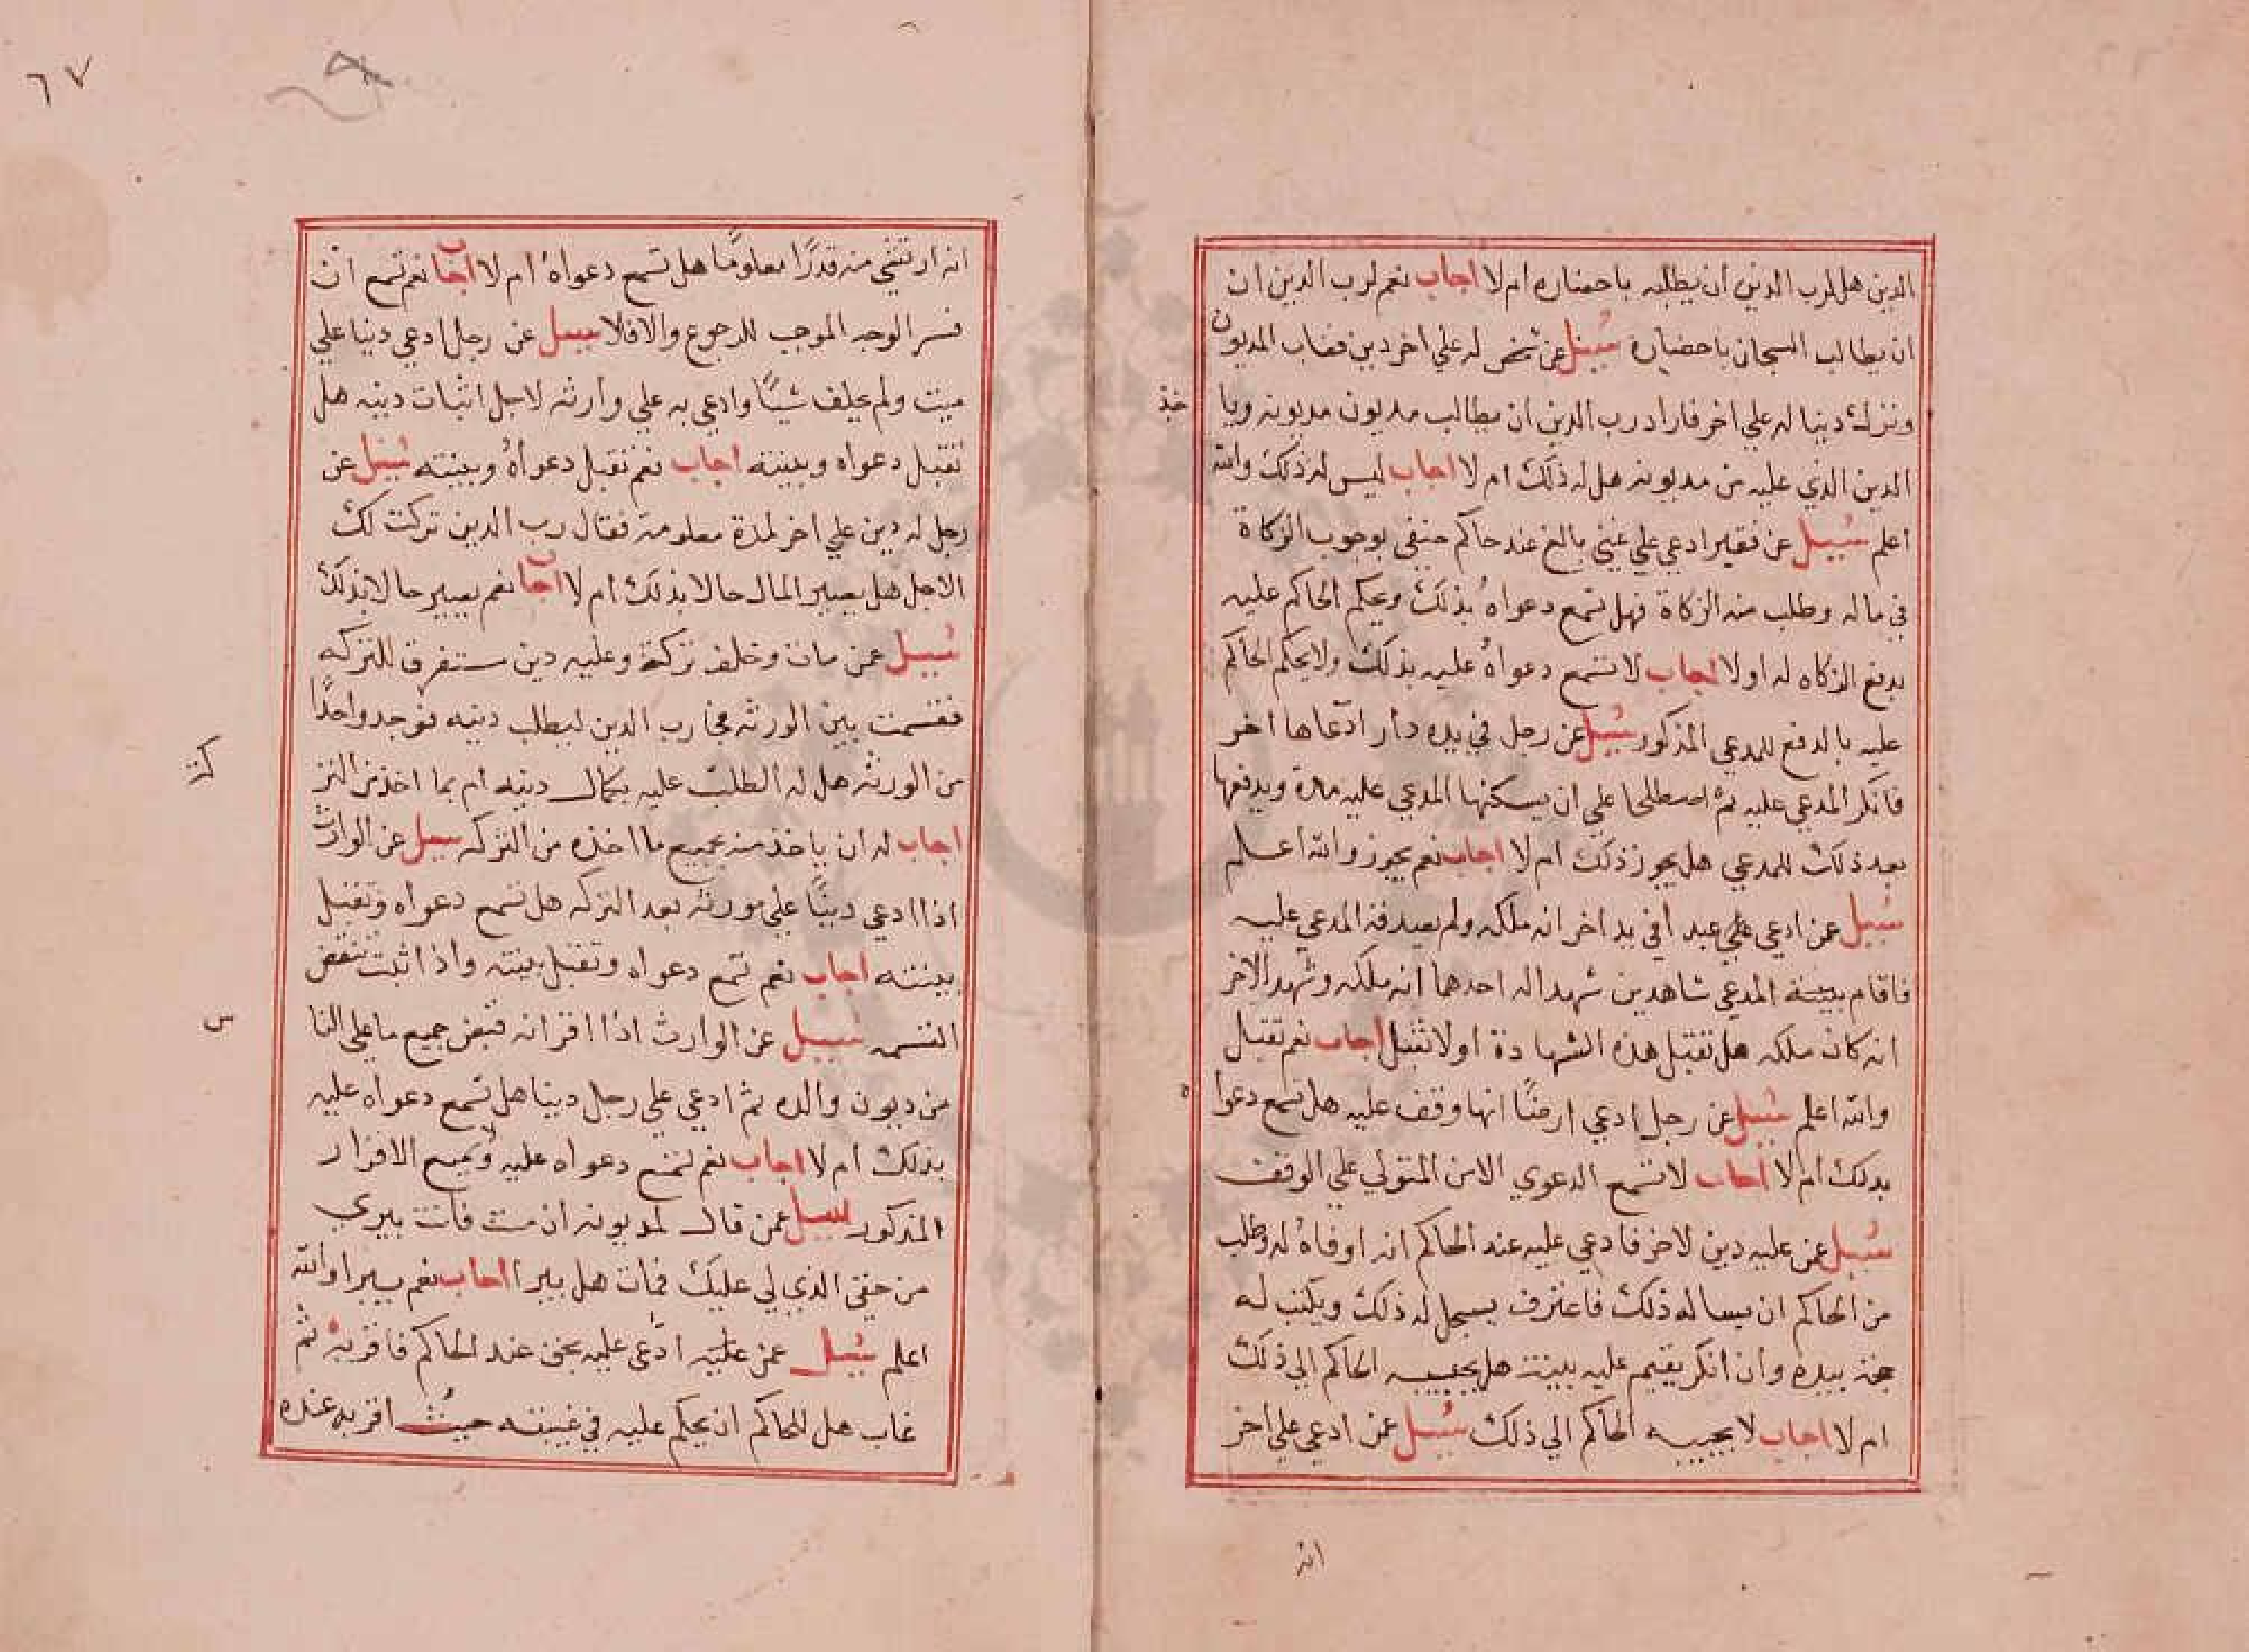 الدين هل لرب الدين ان يطلبه باحضاره ام لا اجاب نعم لرب الدين ان
ان يطالب السجان باحضاره سيل عن شخص له علي اخر دين فغاب المديون
ونزك دينا له علي اخر فاراد رب الدين ان يطالب مديون مديونه ويا
خذ
الدين الذي عليه من مديونه هل له ذلك ام لا اجاب ليس له ذلك والله
اعلم سيل عن فقير ادعي علي غني بالغ عند حاكم حنفي بوجوب الزكاة
في ماله وطلب منه الزكاة فهل تسمع دعواه بذلك ويحكم الحاكم عليه
بدفع الزكاه له او لا اجاب لا تسمع دعواه عليه بذلك ولا يحكم الحاكم
عليه بالدفع للمدعي المذكور سيل عن رجل في يده دار ادعاها اخر
فانكر المدعي عليه ثم اصطلحا علي ان يسكنها المدعي عليه مدة ويدفعها
بعد ذلك للمدعي هل يجوز ذلك ام لا اجاب نعم يجوز والله اعلم
سيل عمن ادعي علي عبد في يد اخر انه ملكه ولم يصدقه المدعي عليه
فاقام بينة المدعي شاهدين شهدا له احدهما انه ملكه وشهد الاخر
انه كان ملكه هل تقبل هذه الشهادة او لا تقبل اجاب نعم تقبل
والله اعلم سيل عن رجل ادعي ارضًا انها وقف عليه هل تسمع دعوا
ه
بذلك ام لا اجاب لا تسمع الدعوي الا من المتولي علي الوقف
سيل عمن عليه دين لاخر فادعي عليه عند الحاكم انه اوفاه له وطلب
من الحاكم ان يساله ذلك فاعترف يسجل له ذلك ويكتب له
حجة بيده وان انكر يقيم عليه بينة هل يجيبه الحاكم الي ذلك
ام لا اجاب لا يجيبه الحاكم الي ذلك سيل عمن ادعي علي اخر
انه
٦٧
انه ارتشي منه قدرًا معلومًا هل تسمع دعواه ام لا اجاب نعم تسمع ان
فسر الوجه الموجب للرجوع والا فلا سيل عن رجل ادعي دينا علي
ميت ولم يخلف شيًا وادعي به علي وارثه لاجل اثبات دينه هل
تقبل دعواه وبينته اجاب نعم تقبل دعواه وبينته سيل عن
رجل له دين علي اخر لمدة معلومة فقال رب الدين تركت لك
الاجل هل يصير المال حالا بذلك ام لا اجاب نعم يصير حالا بذلك
سيل عمن مات وخلف تركة وعليه دين مستغرق للتركه
فقسمت بين الورثه فجا رب الدين ليطلب دينه فوجد واحدًا
من الورثه هل له الطلب عليه بكمال دينه ام بما اخذ من التر
كة
اجاب له ان ياخذ منه جميع ما اخذه من التركه سيل عن الوارث
اذا ادعي دينًا علي مورثه بعد التركه هل تسمع دعواه وتقبل
بينته اجاب نعم تسمع دعواه وتقبل بينته واذا ثبت تنقض
القسمه سيل عن الوارث اذا اقر انه قبض جميع ما علي النا
س
من ديون والده ثم ادعي علي رجل دينا هل تسمع دعواه عليه
بذلك ام لا اجاب نعم تسمع دعواه عليه الاقرار
المذكور سيل عمن قال لمديونه ان مت فانت بيري
من حقي الذي لي عليك فمات هل يبرا اجاب نعم يبرا والله
اعلم سيل عمن ادعي عليه بحق عند الحاكم فاقر به ثم
غاب هل للحاكم ان يحكم عليه في غيبته حيث اقر به عنده